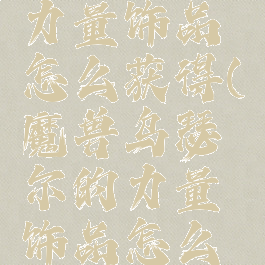 力量饰品
怎么获得(
魔兽乌瑟
尔的力量
饰品怎么